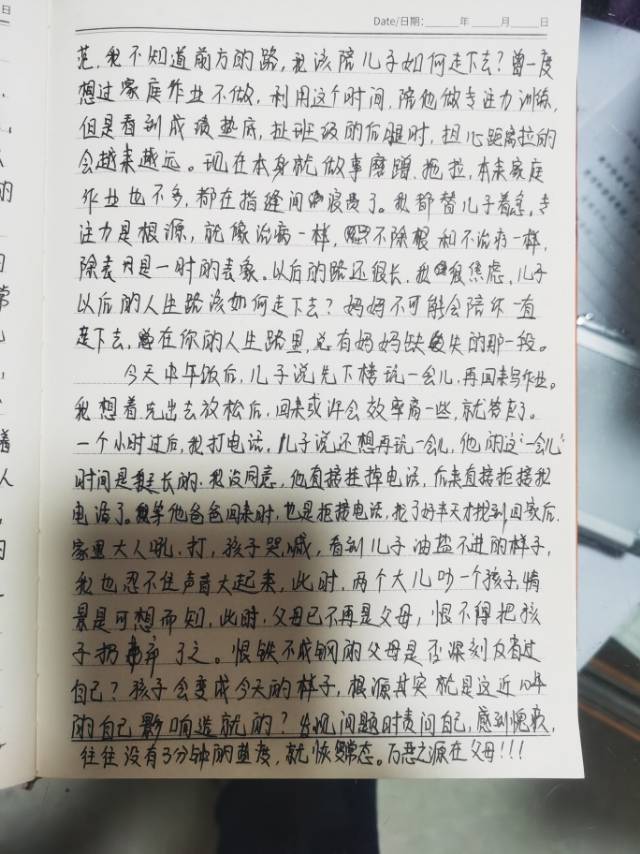 日
Date/日期: 年 月 日
范,我不知道前方的路,我该陪儿子如何走下去?曾一度
想过家庭作业不做,利用这个时间,陪他做专注力训练,
但是看到成绩垫底,扯班级的后腿时,担心距离拉的
会越来越远。现在本身就做事磨蹭、拖拉,本来家庭
作业也不多,都在指缝间浪费了。我都替儿子着急,专
注力是根源,就像治病一样,不除根和不治疗一样,
除表只是一时的表象。以后的路还很长,我很焦虑,儿子
以后的人生路该如何走下去?妈妈不可能会陪你一直
走下去,在你的人生路里,总有妈妈缺失的那一段。
今天中午饭后,儿子说先下楼玩一会儿,再回来写作业。
我想着先出去放松后,回来或许会效率高一些,就答应了。
一个小时过后,我打电话,儿子说还想再玩一会儿,他的这“一会儿”
时间是延长的.我没同意,他直接挂掉电话,后来直接拒接我
电话了。等他爸爸回来时,也是拒接电话,找了好半天才找到回家后.
家里大人吼.打,孩子哭,喊,看到儿子油盐不进的样子,
我也忍不住声音大起来,此时,两个大人吵一个孩子,情
景是可想而知,此时.父母已不再是父母,恨不得把孩
子扔弃了之。恨铁不成钢的父母是否深刻反省过
自己?孩子会变成今天的样子,根源其实就是这近10年
的自己影响造就的?出现问题时责问自己,感到愧疚,
往往没有3分钟的热度,就恢复常态。万恶之源在父母!!!